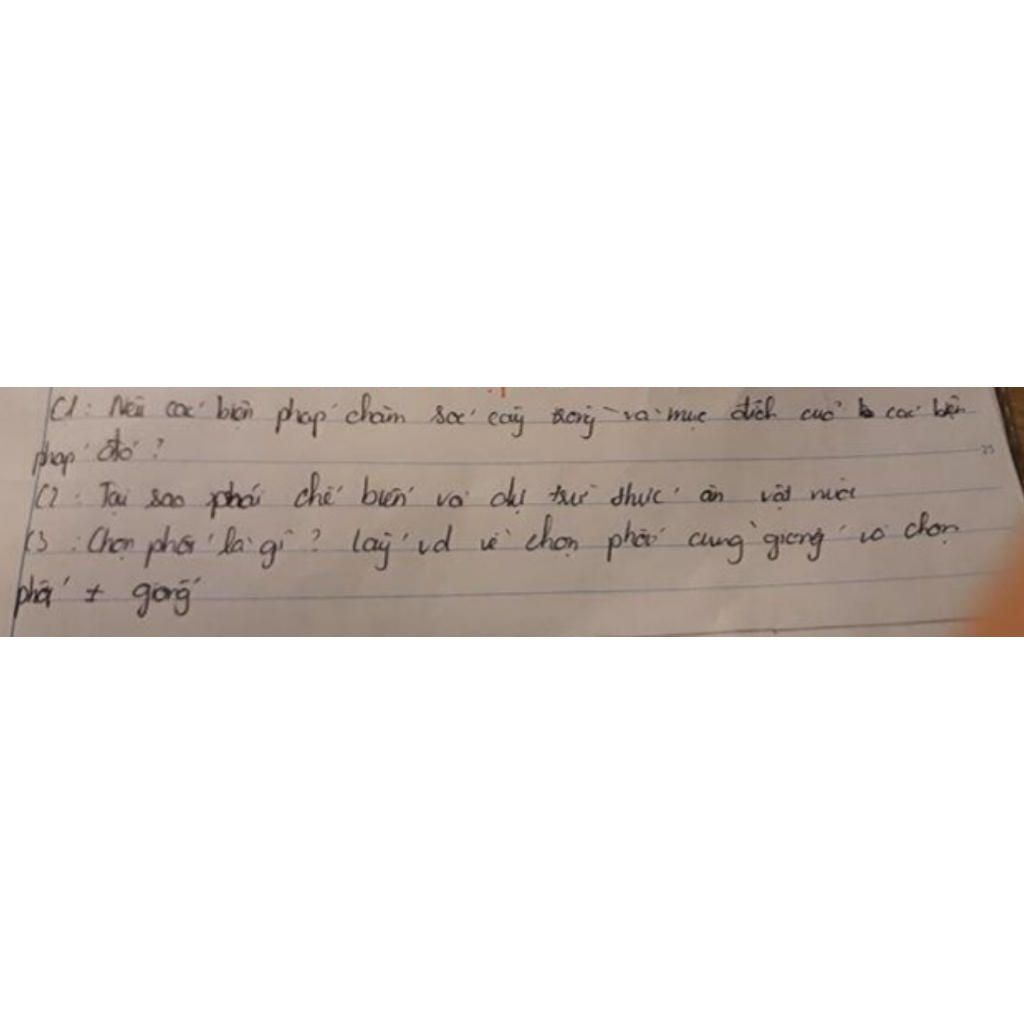 C1: Nêu các biện pháp chăm sóc cây trồng và mục đích cuả các biện
pháp đó?
C2: Tại sao phải chế biến và dự trữ thức ăn vật nuôi
C3: Chọn phối là gì? lấy vd về chọn phối cùng giống và chọn
phối ≠ giống
25